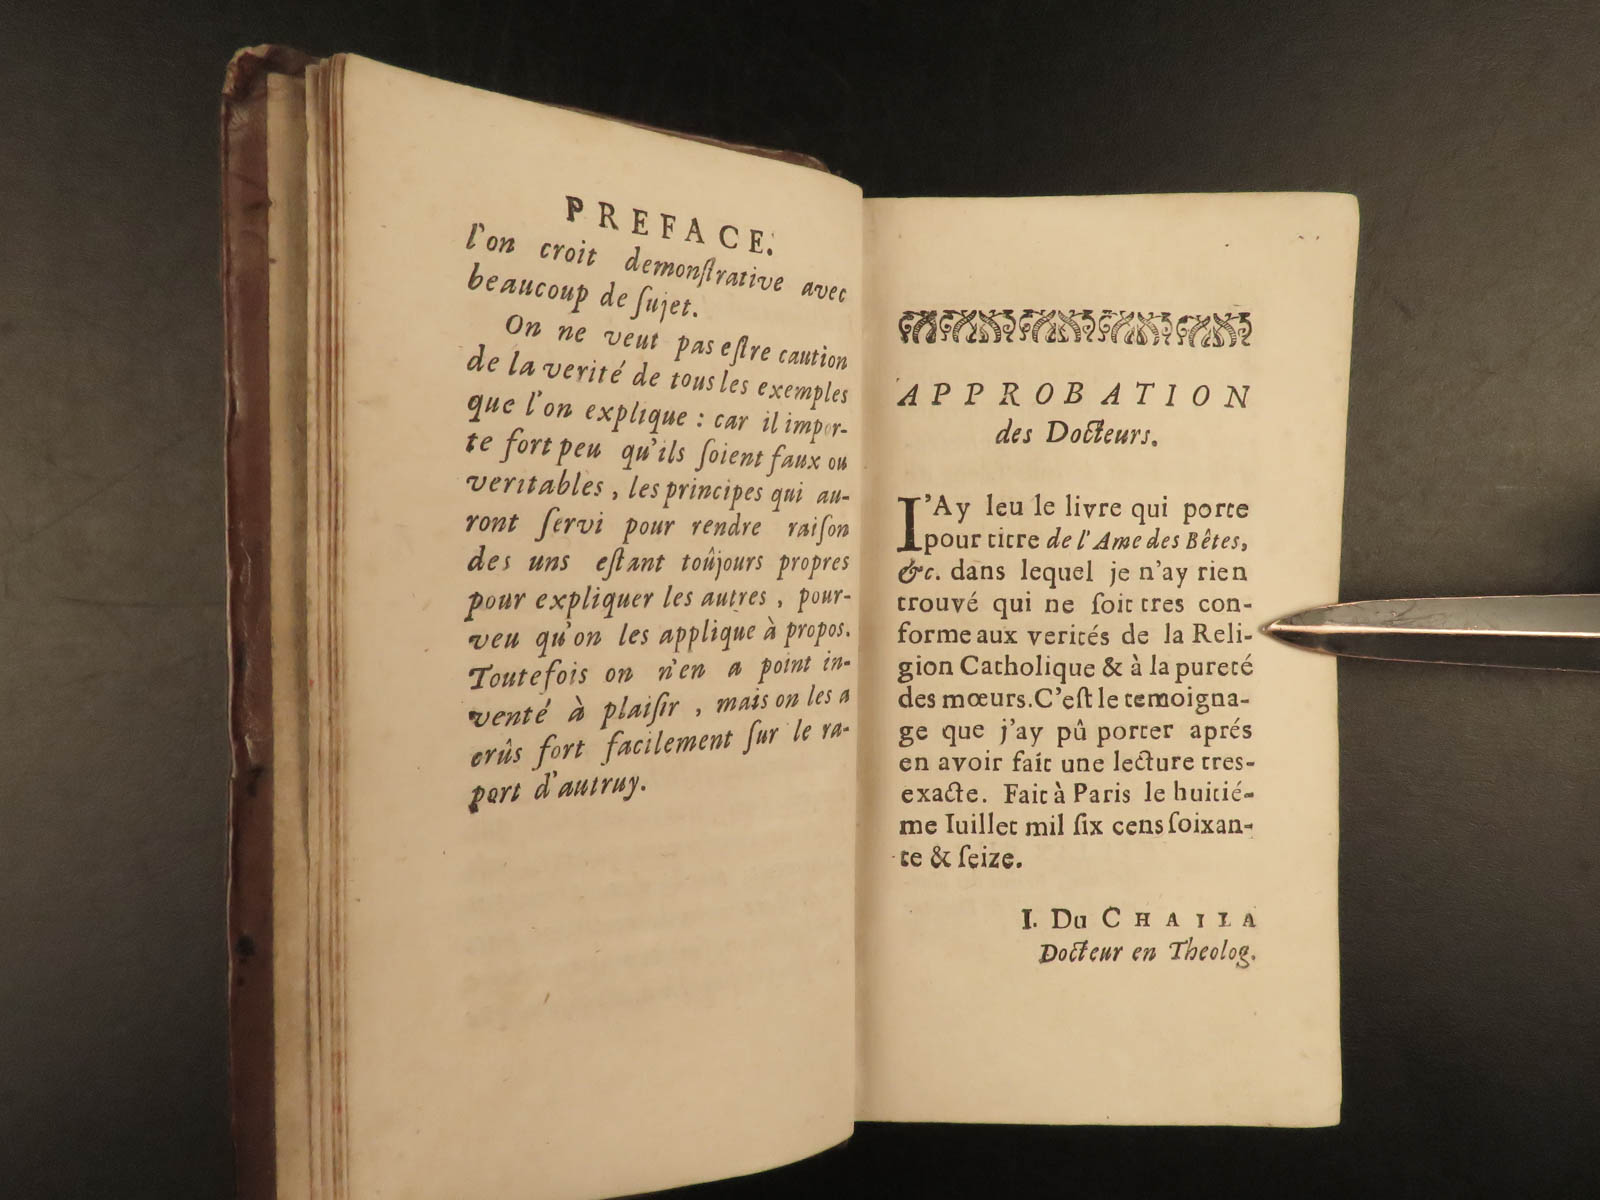 PREFACE.
l'on croit demonſtrative avec
beaucoup de ſujet.
On ne veut pas eſtre caution
de la verité de tous les exemples
que l'on explique : car il impor-
te fort peu qu'ils ſoient faux ou
veritables, les principes qui au-
ront ſervi pour rendre raiſon
des uns eſtant toûjours propres
pour expliquer les autres, pour-
veu qu'on les applique à propos.
Toutefois on n'en a point in-
venté à plaiſir, mais on les a
crûs fort facilement ſur le ra-
port d'autruy.
APPROBATION
des Docteurs.
I'Ay leu le livre qui porte
pour titre de l'Ame des Bêtes,
&c. dans lequel je n'ay rien
trouvé qui ne ſoit tres con-
forme aux verités de la Reli-
gion Catholique & à la pureté
des mœurs. C'eſt le temoigna-
ge que j'ay pû porter aprés
en avoir fait une lecture tres-
exacte. Fait à Paris le huitié-
me Iuillet mil ſix cens ſoixan-
te & ſeize.
I. Du CHAILA
Docteur en Theolog.